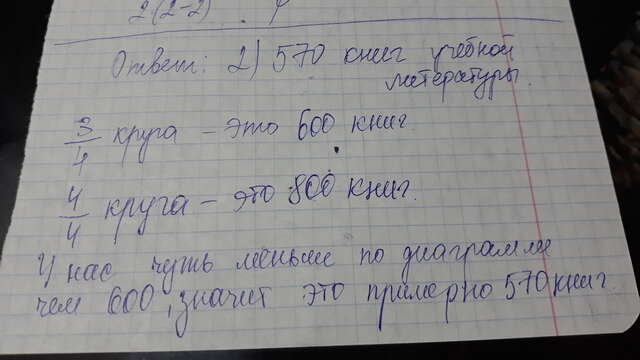 2(2-2)
Ответ: 2) 570 книг учебной
литературы.
3/4 круга – это 600 книг.
4/4 круга – это 800 книг.
У нас чуть меньше по диаграмме
чем 600, значит это примерно 570 книг.